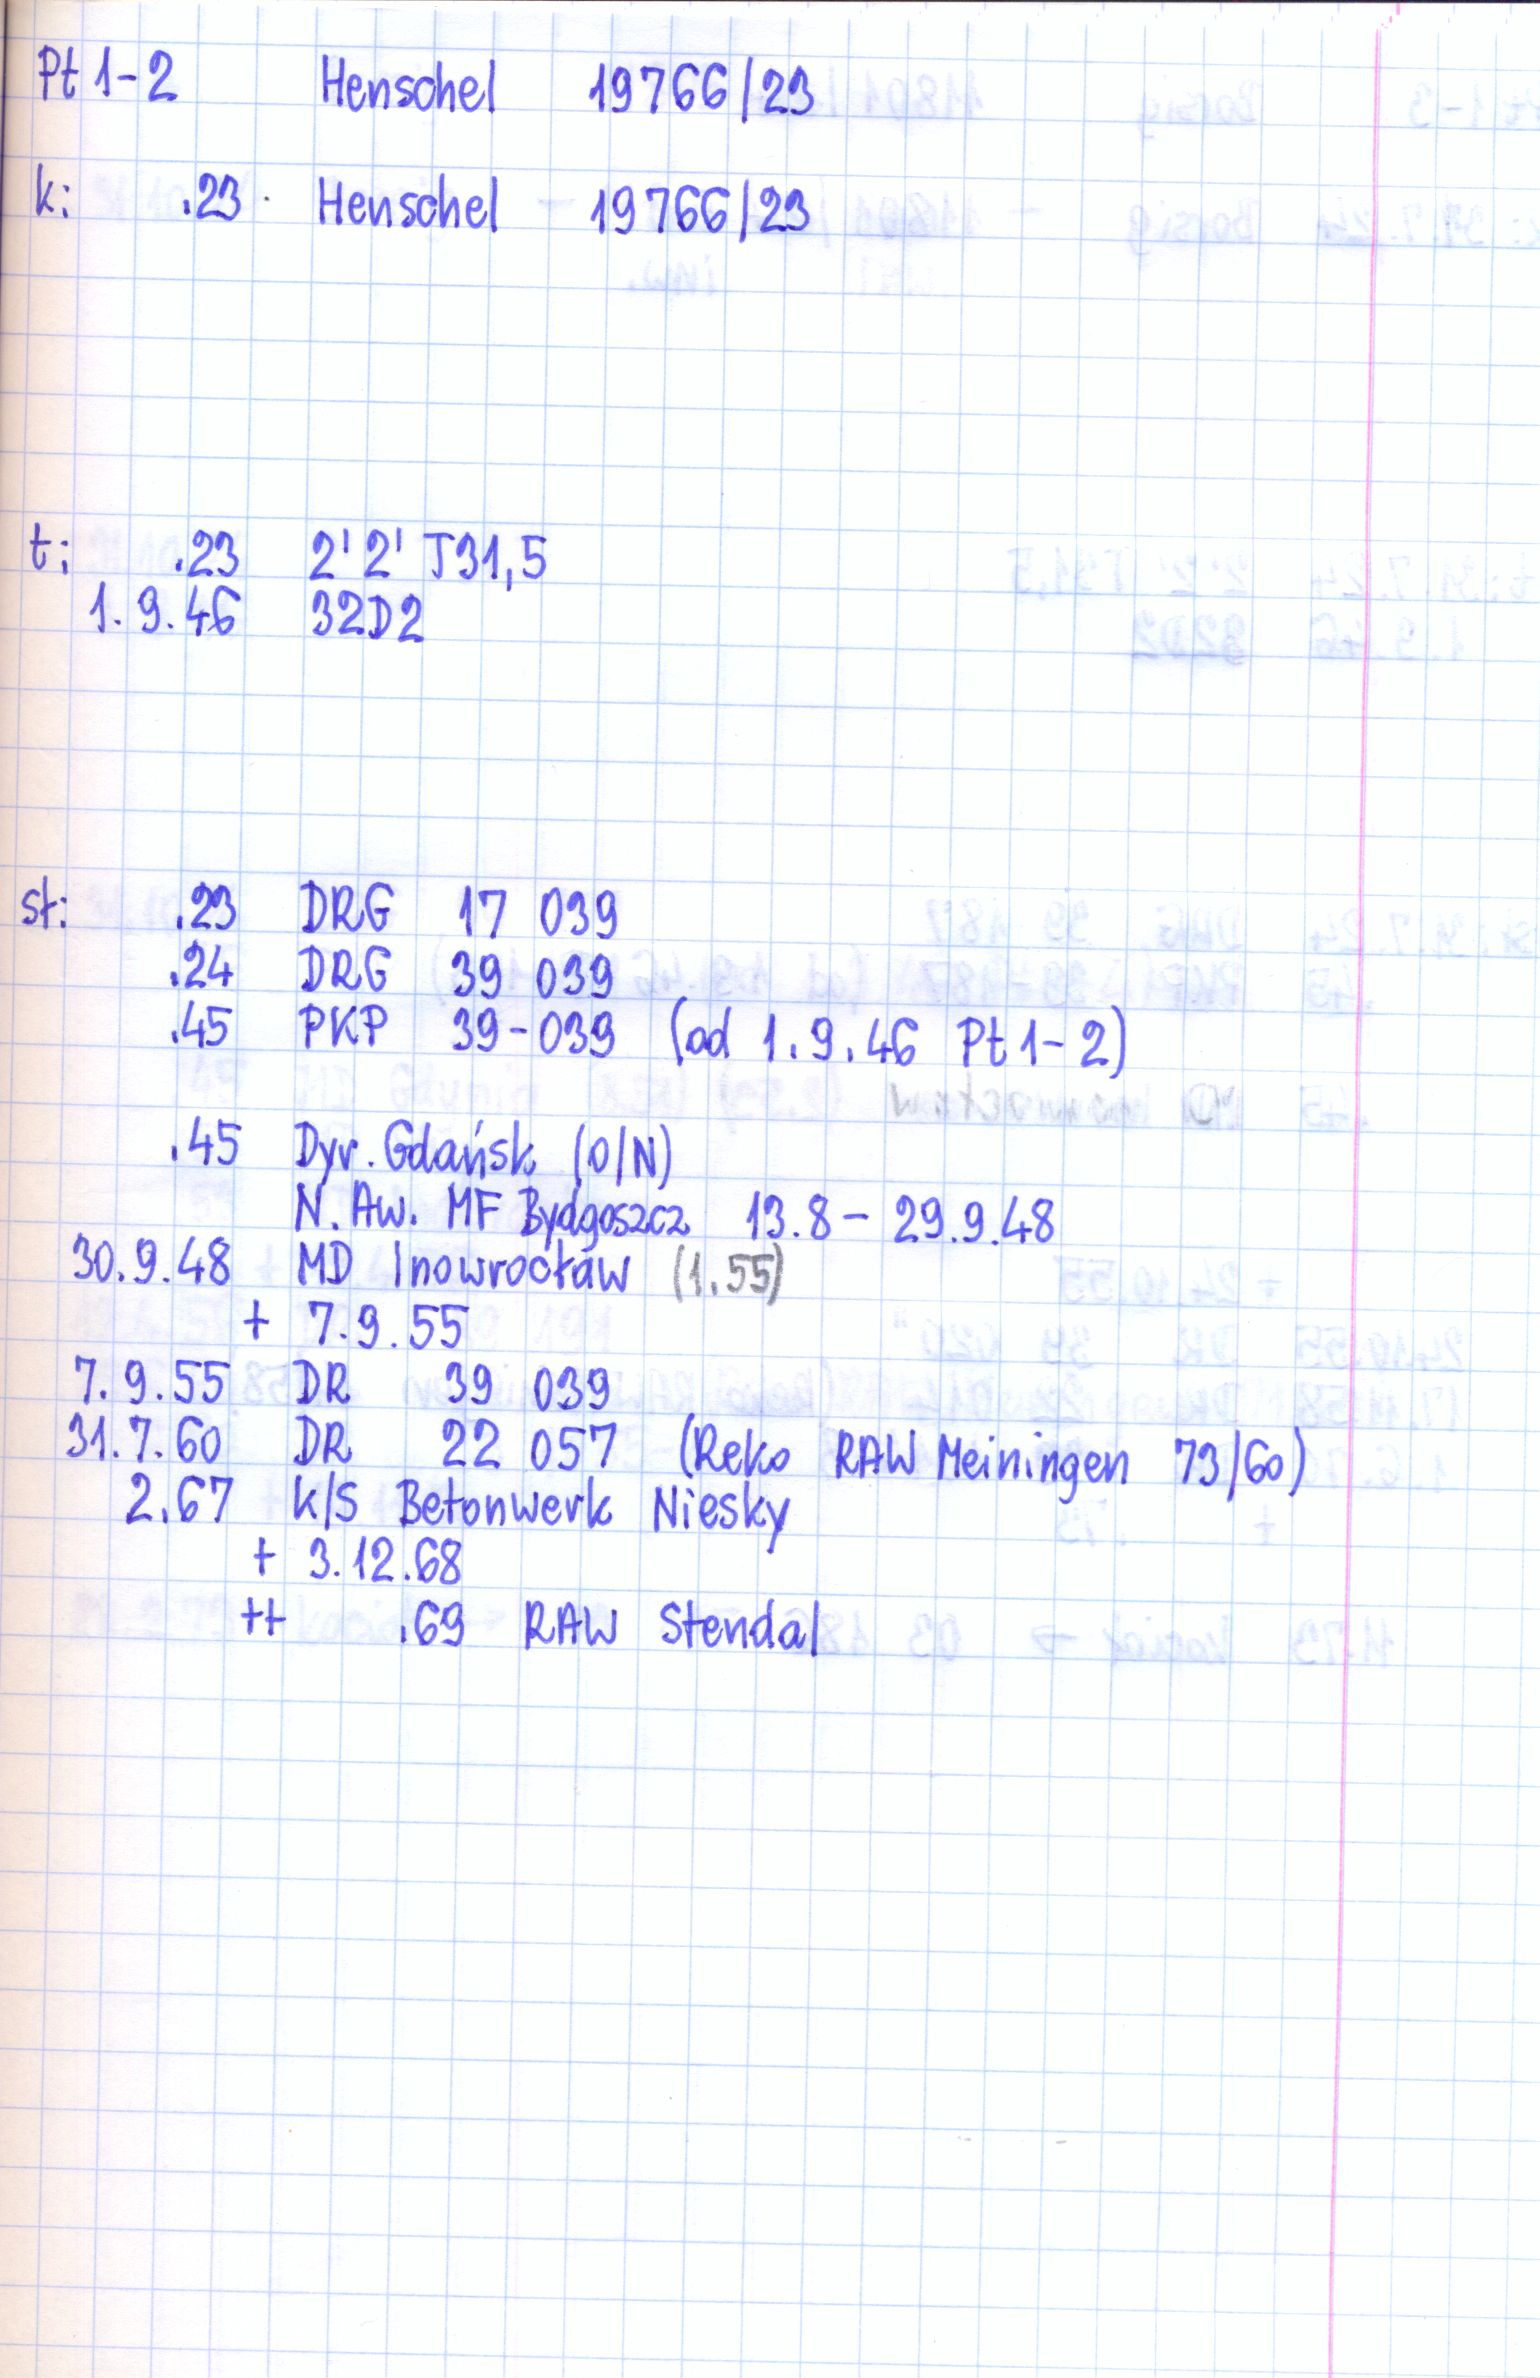 Pt 1-2 Henschel 19766/23
k: .23 Henschel 19766/23
t: .23 2'2' T31,5
1.9.46 32D2
st: .23 DRG 17 039
.24 DRG 39 039
.45 PKP 39-039 (od 1.9.46 Pt 1-2)
.45 Dyr. Gdańsk (O/N)
N. Aw. MF Bydgoszcz 13.8 - 29.9.48
30.9.48 MD Inowrocław (1.55)
+ 7.9.55
7.9.55 DR 39 039
31.7.60 DR 22 057 (Reko RAW Meiningen 73/60)
2.67 k/s Betonwerk Niesky
+ 3.12.68
++ .69 RAW Stendal